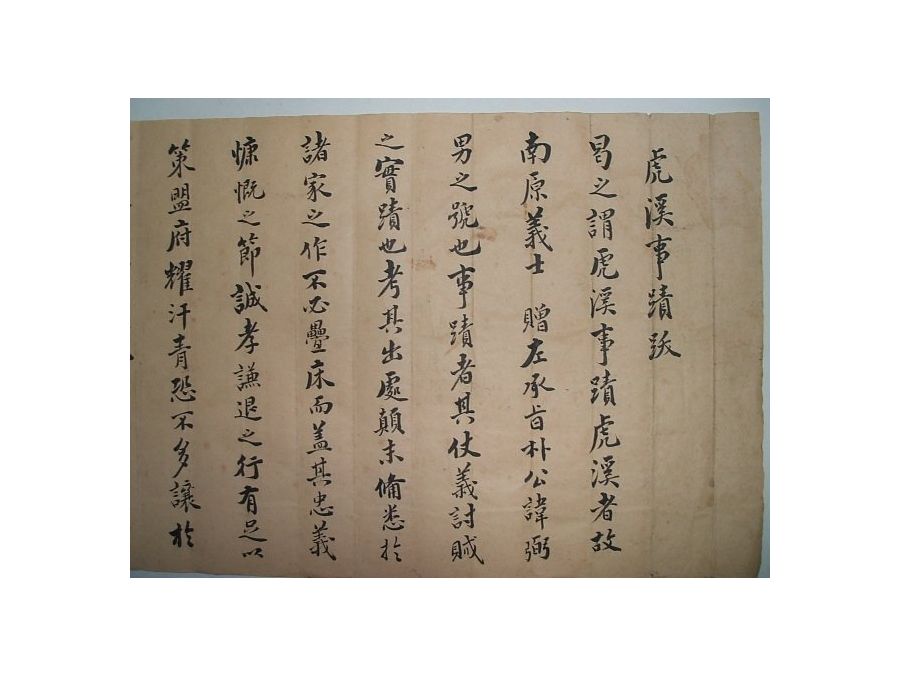 虎溪事蹟跋
曷之謂虎溪事蹟虎溪者故
南原義士 贈左承旨朴公諱弼
男之號也事蹟者其仗義討賊
之實蹟也考其出處顛末備悉於
諸家之作不必疊床而盖其忠義
慷慨之節誠孝謙退之行有足以
策盟府耀汗青恐不多讓於